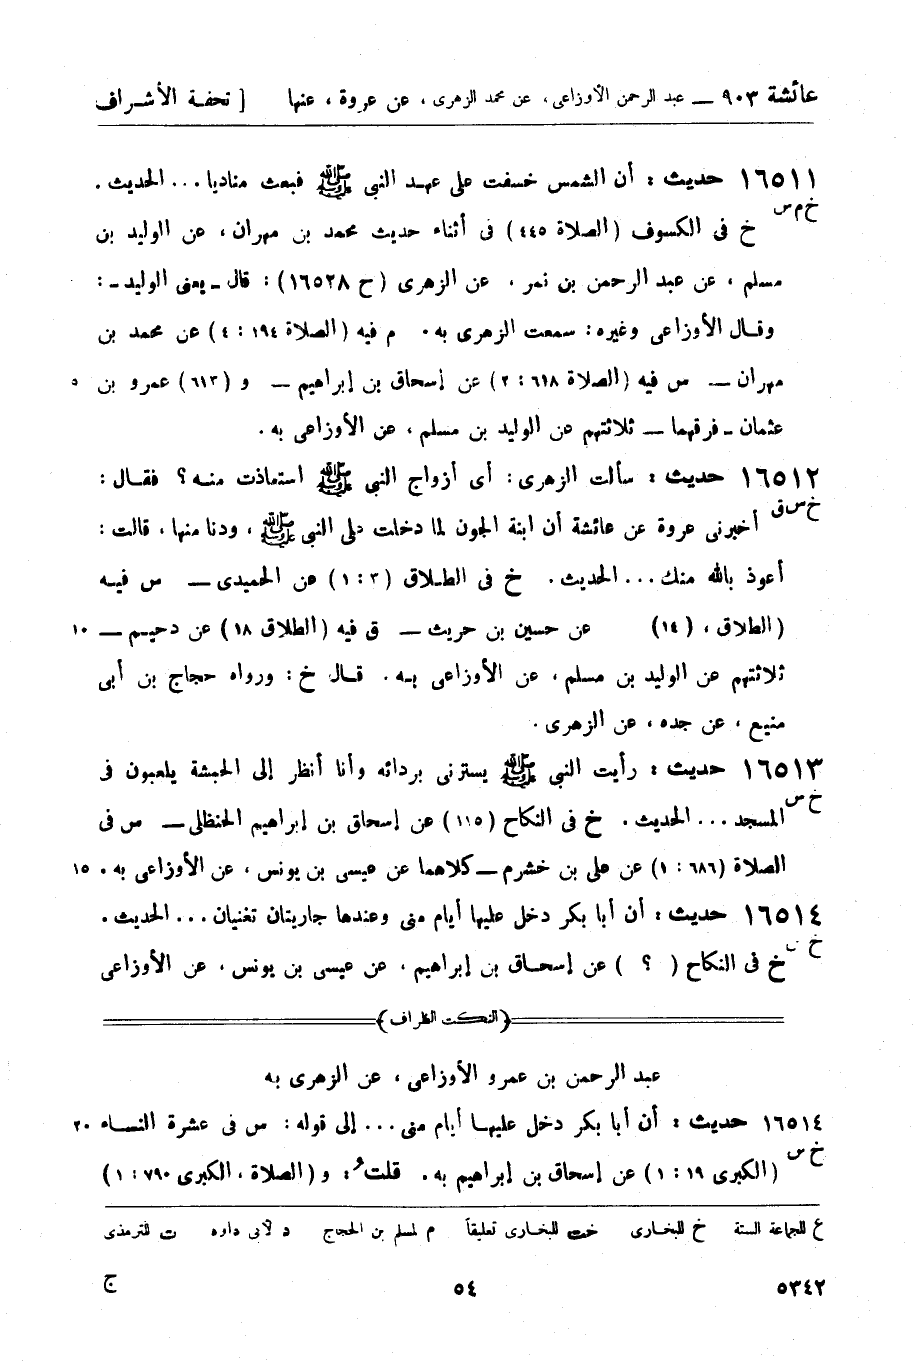 عائشة ٩٠٣ — عبد الرحمن الأوزاعى، عن محمد الزهرى، عن عروة، عنها [ تحفة الأشراف
١٦٥١١ حديث: أن الشمس خسفت على عهد النبى ﷺ فبعث مناديا... الحديث.
خ م س
خ فى الكسوف (الصلاة ٤٤٥) فى أثناء حديث محمد بن مهران، عن الوليد بن
مسلم، عن عبد الرحمن بن نمر، عن الزهرى (ح ١٦٥٢٨): قال ـ يعنى الوليد ـ:
وقال الأوزاعى وغيره: سمعت الزهرى به. م فيه (الصلاة ١٩٤: ٤) عن محمد بن
مهران — س فيه (الصلاة ٦١٨: ٢) عن إسحاق بن إبراهيم — و (٦١٣) عمرو بن ٥
عثمان ـ فرقهما — ثلاثتهم عن الوليد بن مسلم، عن الأوزاعى به.
١٦٥١٢ حديث: سألت الزهرى: أى أزواج النبى ﷺ استعاذت منه؟ فقال:
خ س ق
أخبرنى عروة عن عائشة أن ابنة الجون لما دخلت على النبى ﷺ، ودنا منها، قالت:
أعوذ بالله منك... الحديث. خ فى الطلاق (٣: ١) عن الحميدى — س فيه
(الطلاق، (١٤) عن حسين بن حريث — ق فيه (الطلاق ١٨) عن دحيم — ١٠
ثلاثتهم عن الوليد بن مسلم، عن الأوزاعى به. قال خ: ورواه حجاج بن أبى
منيع، عن جده، عن الزهرى.
١٦٥١٣ حديث: رأيت النبى ﷺ يسترنى بردائه وأنا أنظر إلى الحبشة يلعبون فى
خ س
المسجد... الحديث. خ فى النكاح (١١٥) عن إسحاق بن إبراهيم الحنظلى — س فى
الصلاة (٦٨٦: ١) عن على بن خشرم — كلاهما عن عيسى بن يونس، عن الأوزاعى به. ١٥
١٦٥١٤ حديث: أن أبا بكر دخل عليها أيام منى وعندها جاريتان تغنيان... الحديث.
خ س
خ فى النكاح ( ؟ ) عن إسحاق بن إبراهيم، عن عيسى بن يونس، عن الأوزاعى
﴿النكت الظراف﴾
عبد الرحمن بن عمرو الأوزاعى، عن الزهرى به
١٦٥١٤ حديث: أن أبا بكر دخل عليها أيام منى... إلى قوله: س فى عشرة النساء ٢٠
خ س
(الكبرى ١٩: ١) عن إسحاق بن إبراهيم به. قلت: و (الصلاة، الكبرى ٧٩٠: ١)
ع للجماعة الستة خ للبخارى خت للبخارى تعليقاً م لمسلم بن الحجاج د لأبى داود ت للترمذى
٥٣٤٢ ٥٤ ج